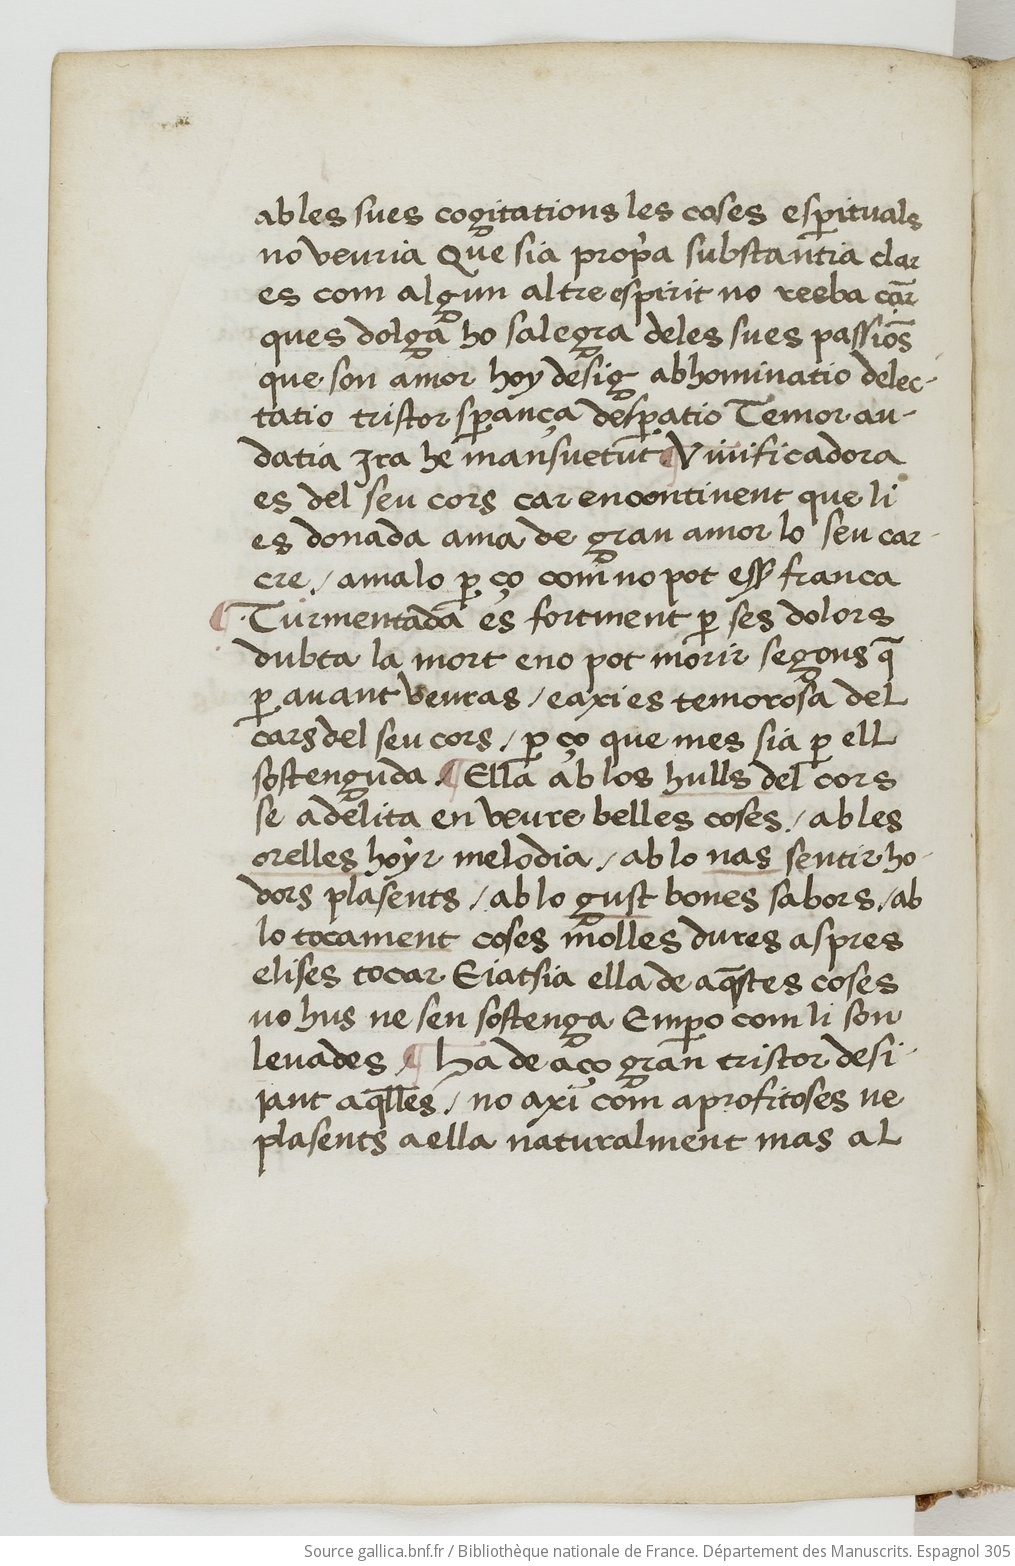 ables sues cogitations les coses esp̲ituals
no veuria Que sia prop̓a substantia clar
es com algun altre espirit no reeba car
ques dolga ho salegra deles sues passiōs
que son amor hoy desig abhominatio delec-
tatio tristor sp̲ança desp̲atio Temor au-
datia Ira he mansuetut ¶ Viuificadora
es del seu cors car encontinent que li
es donada ama de gran amor lo seu car-
cre / amalo p̲ ço com no pot ess̓ franca
¶ Turmentada es fortment p̲ ses dolors
dubta la mort e no pot morir segons q̄
p̲ auant veuras / e axi es temorosa del
cars del seu cors / p̲ ço que mes sia p̲ ell
sostenguda ¶ Ella ab los hulls del cors
se adelita en veure belles coses / ab les
orelles hoyr melodia / ab lo nas sentir ho-
dors plasents / ab lo gust bones sabors / ab
lo tocament coses molles dures aspres
e lises tocar E iatsia ella de aq̄stes coses
no hus ne sen sostenga Emp̲o com li son
leuades / ¶ Ha de aço gran tristor desi-
iant aq̄lles / no axi com aprofitoses ne
plasents a ella naturalment mas al
Source gallica.bnf.fr / Bibliothèque nationale de France. Département des Manuscrits. Espagnol 305